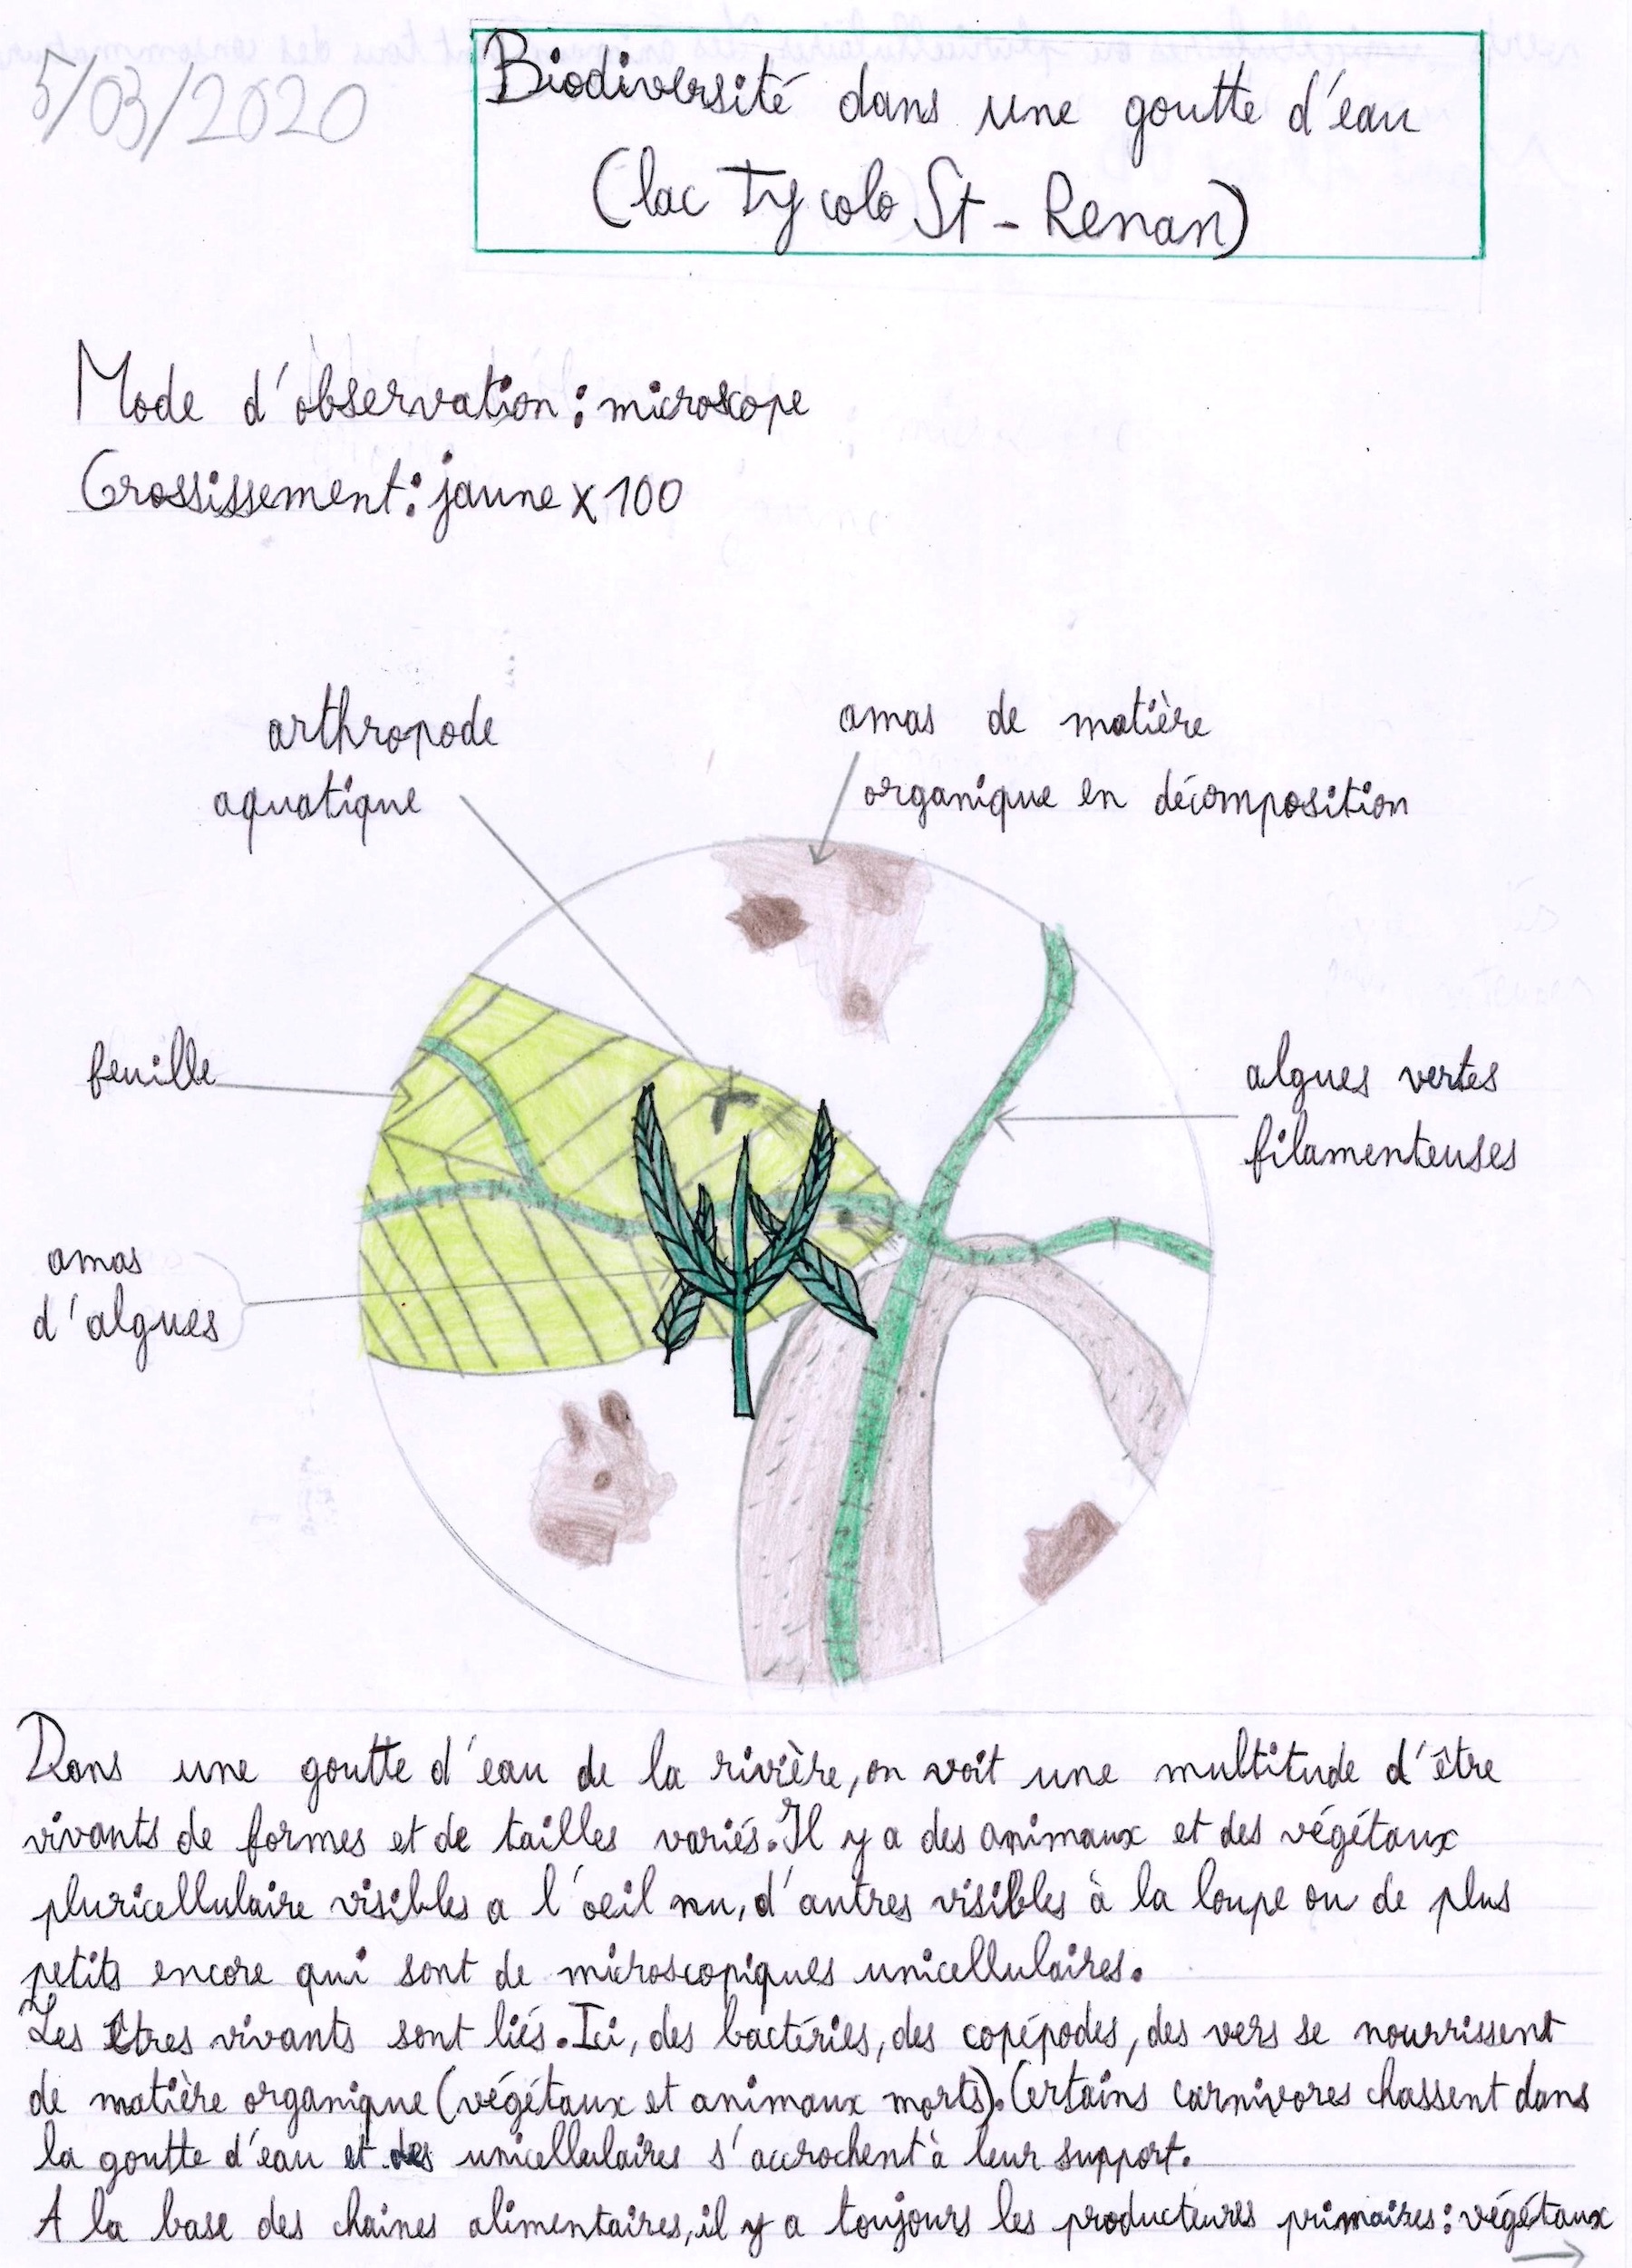 5/03/2020
Biodiversité dans une goutte d'eau
(lac Ty colo St-Renan)
Mode d'observation : microscope
Grossissement : jaune x 100
arthropode
aquatique
amas de matière
organique en décomposition
feuille
algues vertes
filamenteuses
amas
d'algues
Dans une goutte d'eau de la rivière, on voit une multitude d'être
vivants de formes et de tailles variés. Il y a des animaux et des végétaux
pluricellulaire visibles a l'oeil nu, d'autres visibles à la loupe ou de plus
petits encore qui sont de microscopiques unicellulaires.
Les êtres vivants sont liés. Ici, des bactéries, des copépodes, des vers se nourrissent
de matière organique (végétaux et animaux morts). Certains carnivores chassent dans
la goutte d'eau et des unicellulaires s'accrochent à leur support.
A la base des chaines alimentaires, il y a toujours les producteures primaires : végétaux